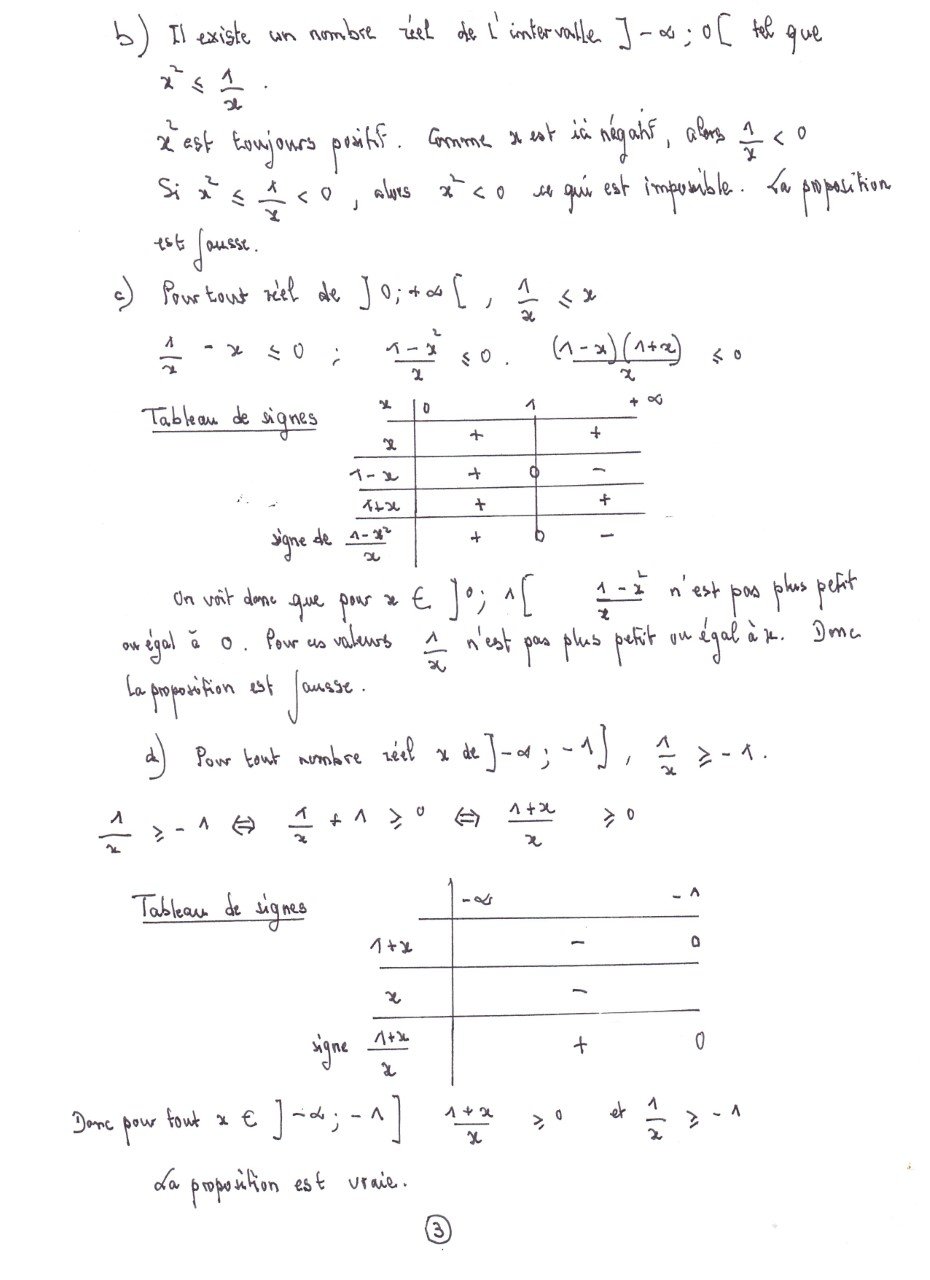 b) Il existe un nombre réel de l'intervalle ]-∞ ; 0[ tel que
x² ≤ 1/x .
x² est toujours positif. Comme x est ici négatif, alors 1/x < 0
Si x² ≤ 1/x < 0 , alors x² < 0 ce qui est impossible. La proposition
est fausse.
c) Pour tout réel de ]0 ; +∞[ , 1/x ≤ x
1/x - x ≤ 0 ; (1-x²)/x ≤ 0 . (1-x)(1+x)/x ≤ 0
Tableau de signes
x | 0 1 +∞
x | + | +
1-x | + 0 -
1+x | + | +
signe de (1-x²)/x | + 0 -
On voit donc que pour x ∈ ]0 ; 1[ (1-x²)/x n'est pas plus petit
ou égal à 0. Pour ces valeurs 1/x n'est pas plus petit ou égal à x. Donc
la proposition est fausse.
d) Pour tout nombre réel x de ]-∞ ; -1] , 1/x ≥ -1.
1/x ≥ -1 ⇔ 1/x + 1 ≥ 0 ⇔ (1+x)/x ≥ 0
Tableau de signes
| -∞ -1
1+x | - 0
x | -
signe (1+x)/x | + 0
Donc pour tout x ∈ ]-∞ ; -1] (1+x)/x ≥ 0 et 1/x ≥ -1
La proposition est vraie.
3